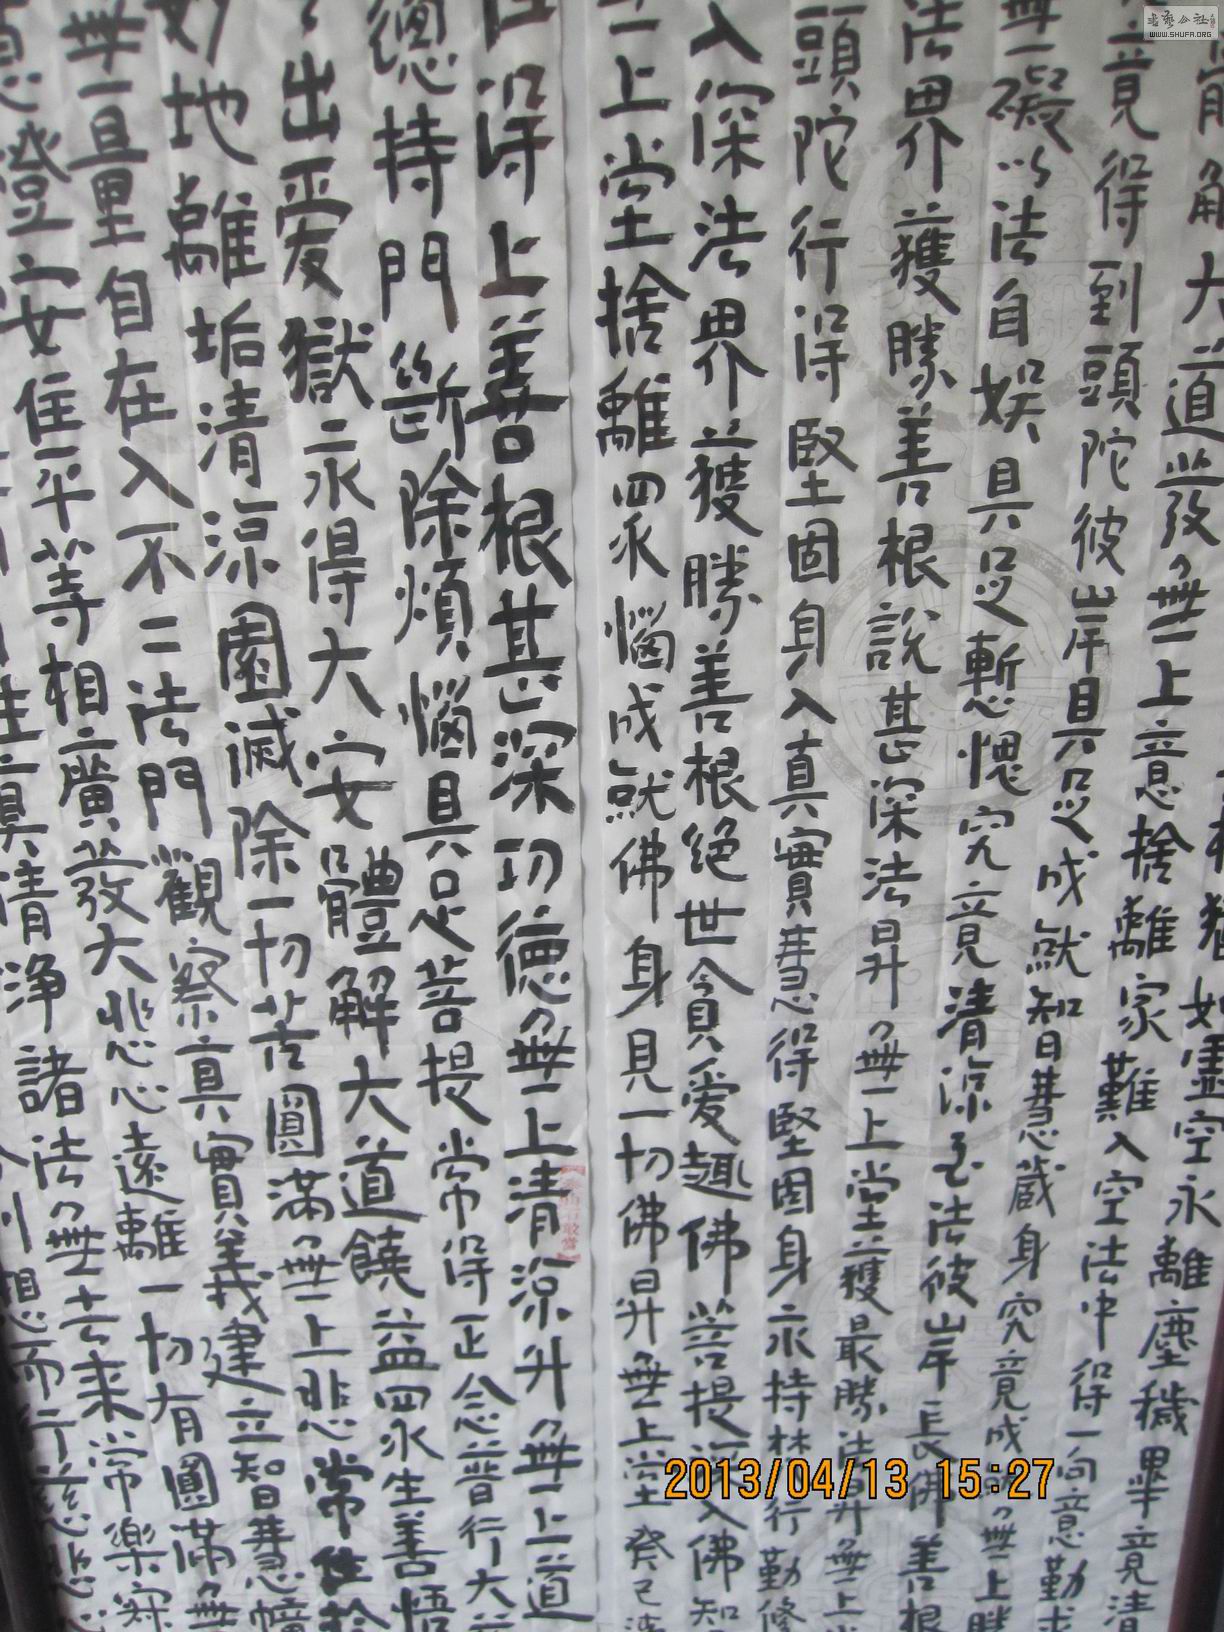 能解大道發無上意捨離家難入空法中得一向意勤求
竟得到頭陀彼岸具足成就智慧藏身究竟成就無上勝
無礙以法自娱具足慙愧究竟清涼至法彼岸長佛善根
法界獲勝善根說甚深法昇無上堂獲最勝法昇無上
頭陀行得堅固身入真實慧得堅固身永持林行勤修
入深法界獲勝善根絕世貪愛趣佛菩提深入佛知
上堂捨離眾惱成就佛身見一切佛昇無上堂癸巳
得上善根甚深功德無上清涼升無上道
總持門斷除煩惱具足菩提常得正念普行大
出愛獄永得大安體解大道饒益眾生善悟
妙地離垢清涼園滅除一切苦圓滿無上悲常住於
無量自在入不二法門觀察真實義建立智慧幢
澄安住平等相廣發大悲心遠離一切有圓滿無
性真清淨諸法無去來常樂寂
想而行慈悲心
猶如虛空永離塵穢畢竟清
書藝公社
WWW.SHUFA.ORG
2013/04/13 15:27